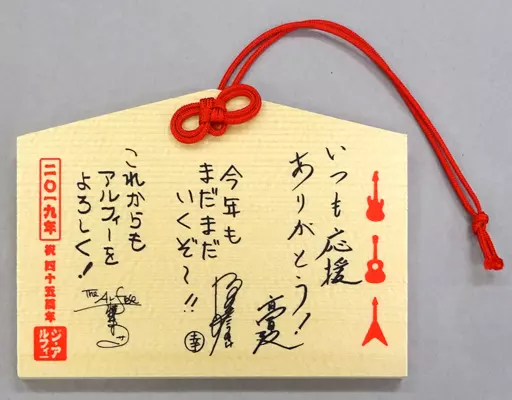 いつも応援
ありがとう!
今年も
まだまだ
いくぞ〜!!
幸
これからも
アルフィーを
よろしく!
The Alfee
二〇一九年
祝 四十五周年
ジ・ア
ルフィー